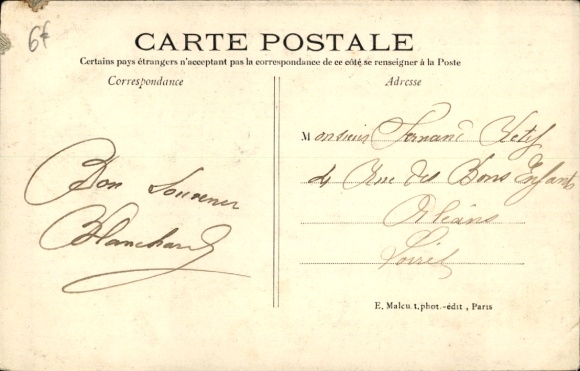 6f
CARTE POSTALE
Certains pays étrangers n'acceptant pas la correspondance de ce côté se renseigner à la Poste
Correspondance
Adresse
Monsieur Fernand
4 Rue des Bons Enfants
Orléans
Loiret
Bon Souvenir
Blanchard
E. Malcuit, phot.-édit, Paris